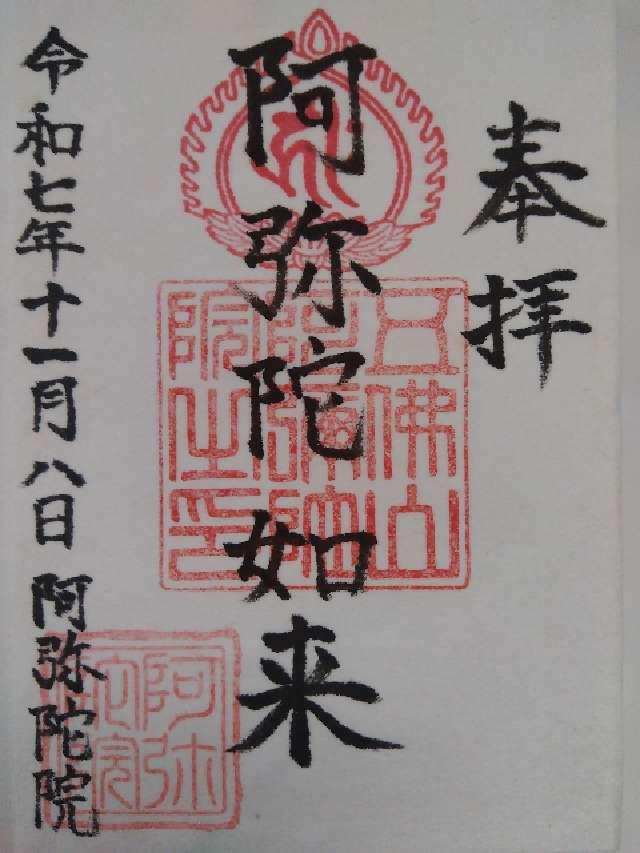 奉拝
阿弥陀如来
五佛山
阿彌陀
院之印
令和七年十一月八日 阿弥陀院
阿弥
陀院